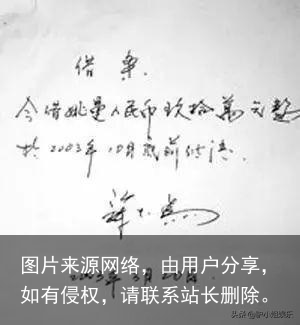 借
今借姚曼人民币玖拾萬元整
於2003年10月底前付清.
图片来源网络，由用户分享，
如有侵权，请联系站长删除。